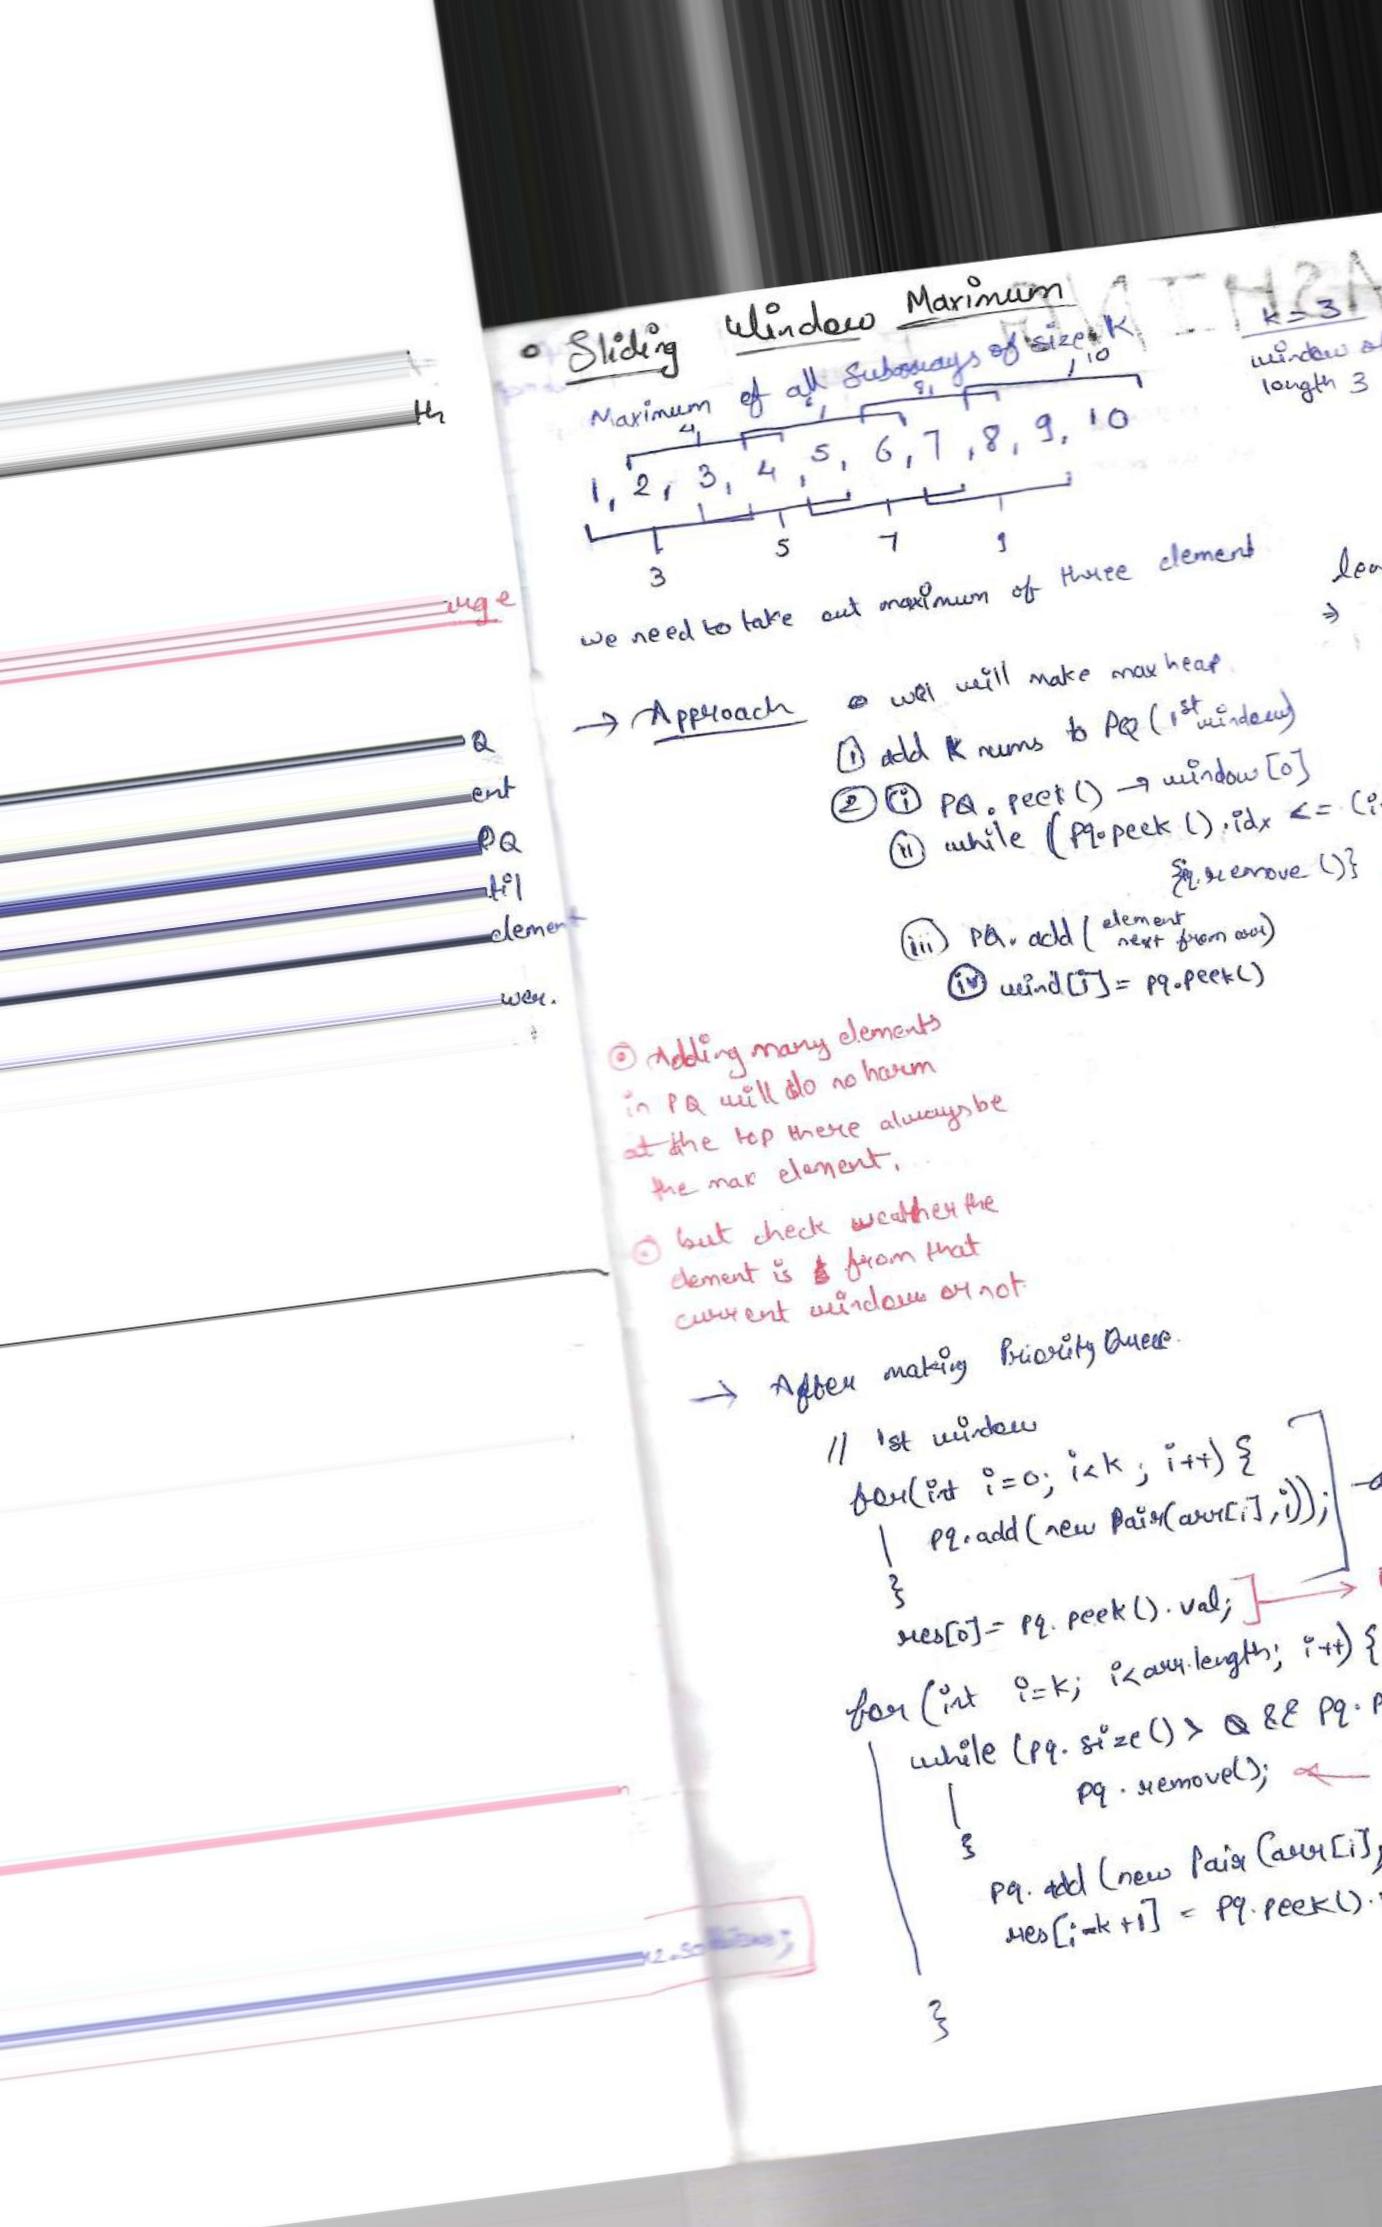 th
urge
Q
ent
PQ
til
element
wer.
• Sliding Window Maximum
Maximum of all Subarrays of size K
K = 3
window of
length 3
4 6 8 10
1, 2, 3, 4, 5, 6, 7, 8, 9, 10
3 5 7 9
we need to take out maximum of three element
→ Approach
we will make max heap.
① add K nums to PQ (1st window)
② ⓘ PQ.peek() → window[0]
ⓘⓘ while (pq.peek().idx <= (i-
{q.remove()}
(iii) PQ.add (element next from arr)
(iv) wind[i] = pq.peek()
⊙ Adding many elements
in PQ will do no harm
at the top there always be
the max element.
⊙ but check weather the
element is from that
current window or not.
→ After making Priority Queue.
// 1st window
for(int i=0; i<k; i++) {
pq.add(new Pair(arr[i],i));
}
res[0] = pq.peek().val;
for (int i=k; i<arr.length; i++) {
while (pq.size() > 0 && pq.p
pq.remove();
}
pq.add (new Pair (arr[i],
res[i-k+1] = pq.peek().
}